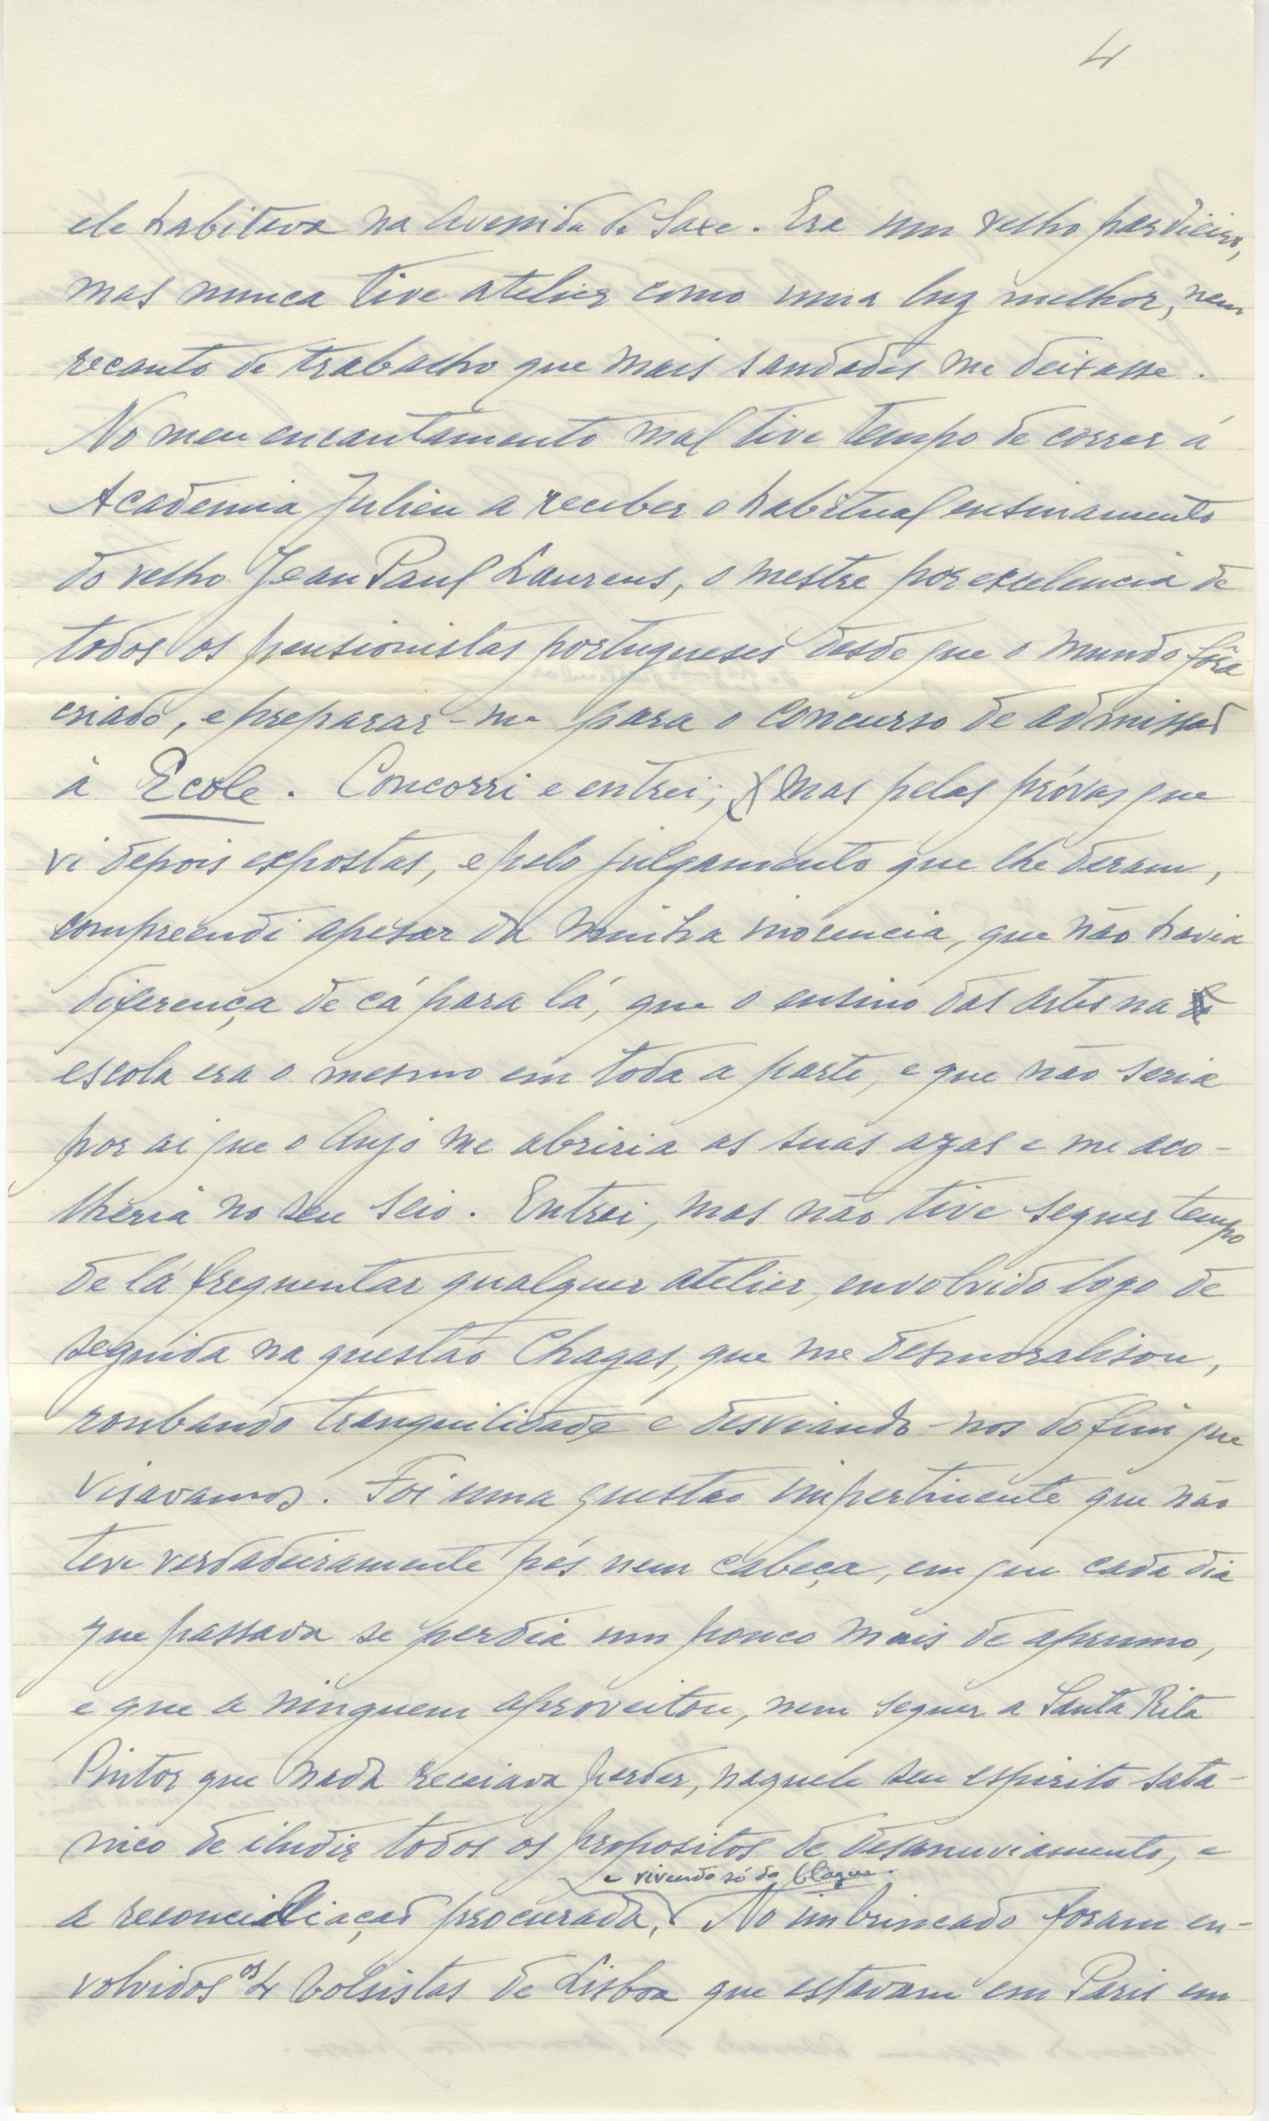 4
ele habitava na Avenida de Saxe. Era um velho pardieiro,
mas nunca tive atelier como uma luz melhor, nem
recanto de trabalho que mais saudades me deixasse.
No meu encantamento mal tive tempo de correr á
Academia Julien a receber o habitual ensinamento
do velho Jean Paul Laurens, o mestre por excelencia de
todos os pensionistas portugueses desde que o mundo fôra
criado, e preparar-me para o concurso de admissão
á Ecole. Concorri e entrei; mas pelas próvas que
vi depois expostas, e pelo julgamento que lhe deram,
compreendi apesar da minha inocencia, que não havia
diferença de cá para lá, que o ensino das artes na
escola era o mesmo em toda a parte, e que não seria
por ai que o Anjo me abriria as suas azas e me aco-
lheria no seu seio. Entrei, mas não tive sequer tempo
de lá frequentar qualquer atelier, envolvido logo de
seguida na questão Chagas, que me desmoralisou,
roubando tranquilidade e desviando-nos do fim que
visavamos. Foi uma questão impertinente que não
teve verdadeiramente pés nem cabeça, em que cada dia
que passava se perdia um pouco mais de aprumo,
e que a ninguem aproveitou, nem sequer a Santa Rita
Pintor que nada receiava perder, naquele seu espirito sata-
nico de iludir todos os propositos de desanuviamento, e
e vivendo só da blague.
a reconciliação procurada, No imbrincado foram en-
volvidos os 4 bolsistas de Lisboa que estavam em Paris em